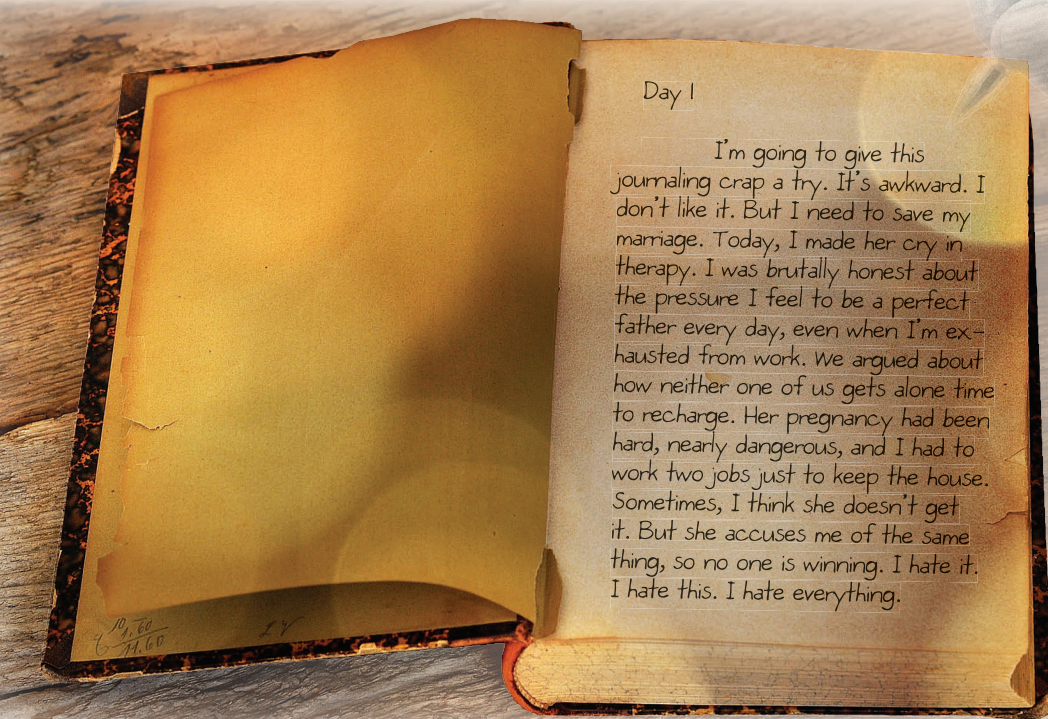 Day 1
I'm going to give this
journaling crap a try. It's awkward. I
don't like it. But I need to save my
marriage. Today, I made her cry in
therapy. I was brutally honest about
the pressure I feel to be a perfect
father every day, even when I'm ex-
hausted from work. We argued about
how neither one of us gets alone time
to recharge. Her pregnancy had been
hard, nearly dangerous, and I had to
work two jobs just to keep the house.
Sometimes, I think she doesn't get
it. But she accuses me of the same
thing, so no one is winning. I hate it.
I hate this. I hate everything.
10
1.60
11.60